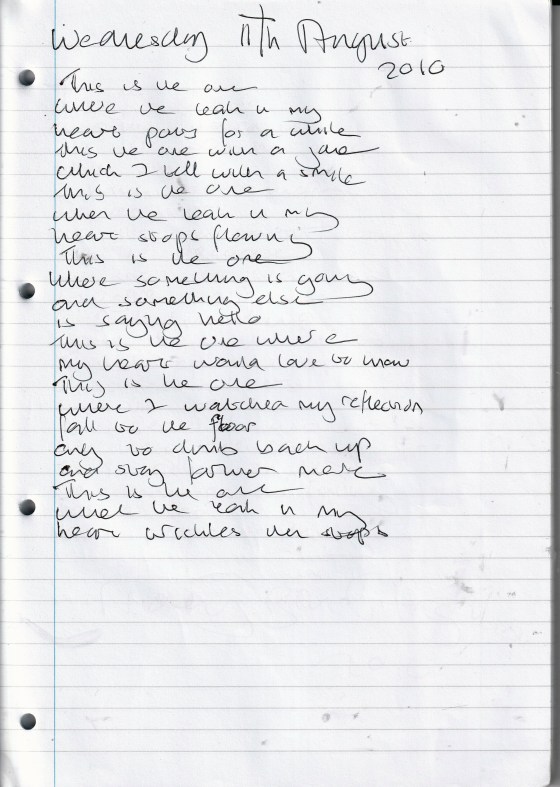 Wednesday 11th August
2010
This is the one
where the leak in my
heart pours for a while
this the one with a joke
which I tell with a smile
This is the one
when the leak in my
heart stops flowing
This is the one
where something is going
and something else
is saying hello
This is the one where
my heart would love to know
This is the one
where I watched my reflection
fall to the floor
and to climb back up
and stay former
This is the one
where the leak in my
heart trickles then stops